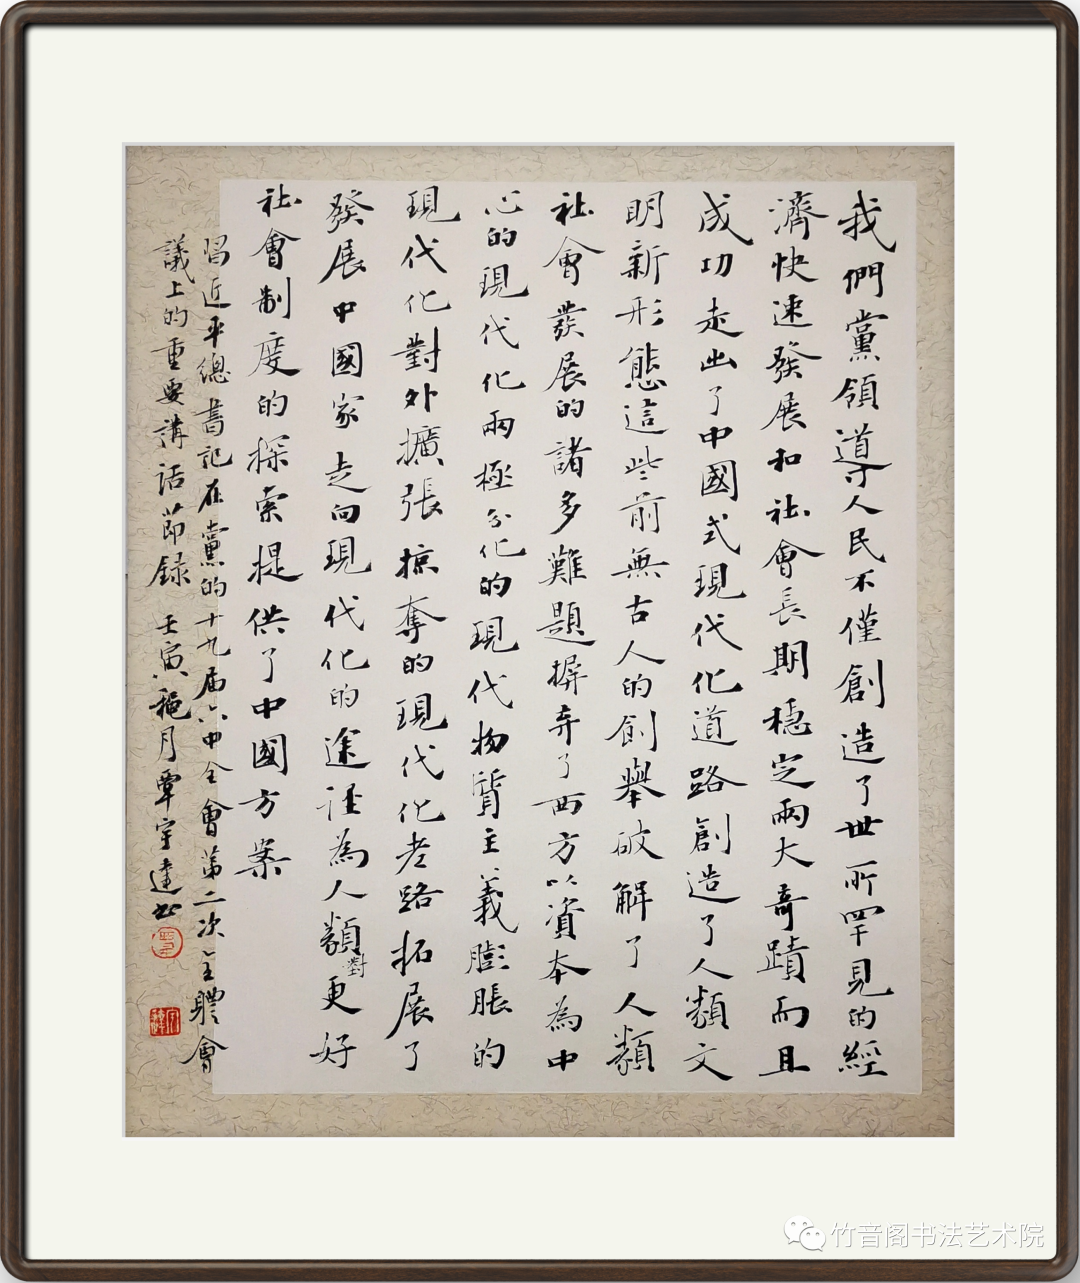 我們黨領導人民不僅創造了世所罕見的經
濟快速發展和社會長期穩定兩大奇蹟而且
成功走出了中國式現代化道路創造了人類文
明新形態這些前無古人的創舉破解了人類
社會發展的諸多難題摒弃了西方以資本為中
心的現代化兩極分化的現代物質主義膨脹的
現代化對外擴張掠奪的現代化老路拓展了
發展中國家走向現代化的途徑為人類對更好
社會制度的探索提供了中國方案
習近平總書記在黨的十九届六中全會第二次全體會
議上的重要講話節録 壬寅桃月覃宇達书
竹音阁书法艺术院